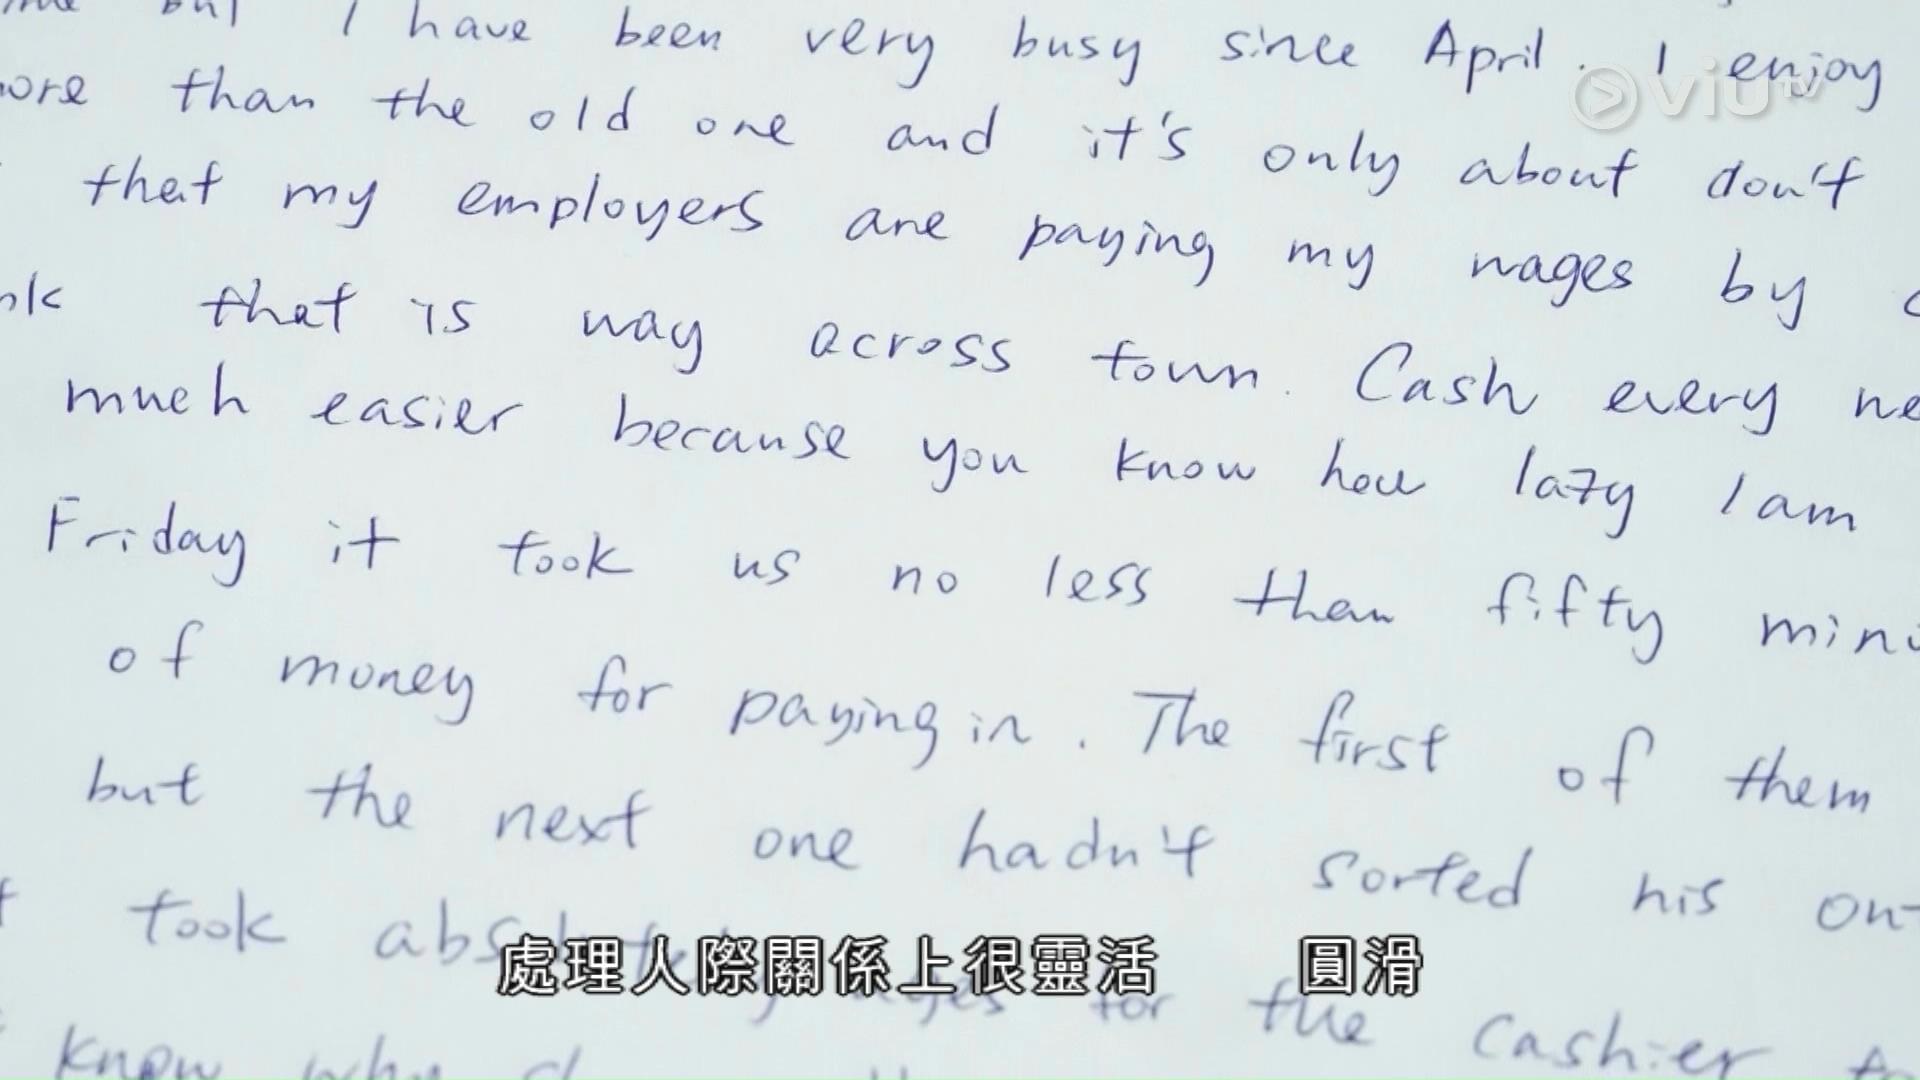 but I have been very busy since April. I enjoy
than the old one and it's only about don't
that my employers are paying my wages by
that is way across town. Cash every
much easier because you know how lazy I am
Friday it took us no less than fifty
of money for paying in. The first of them
but the next one hadn't sorted his
took for the cashier
know why
viu tv
處理人際關係上很靈活 圓滑